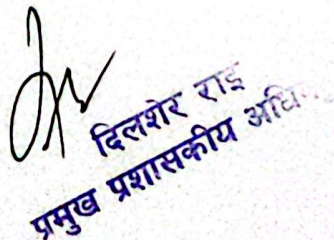 दिलशेर राइ
प्रमुख प्रशासकीय